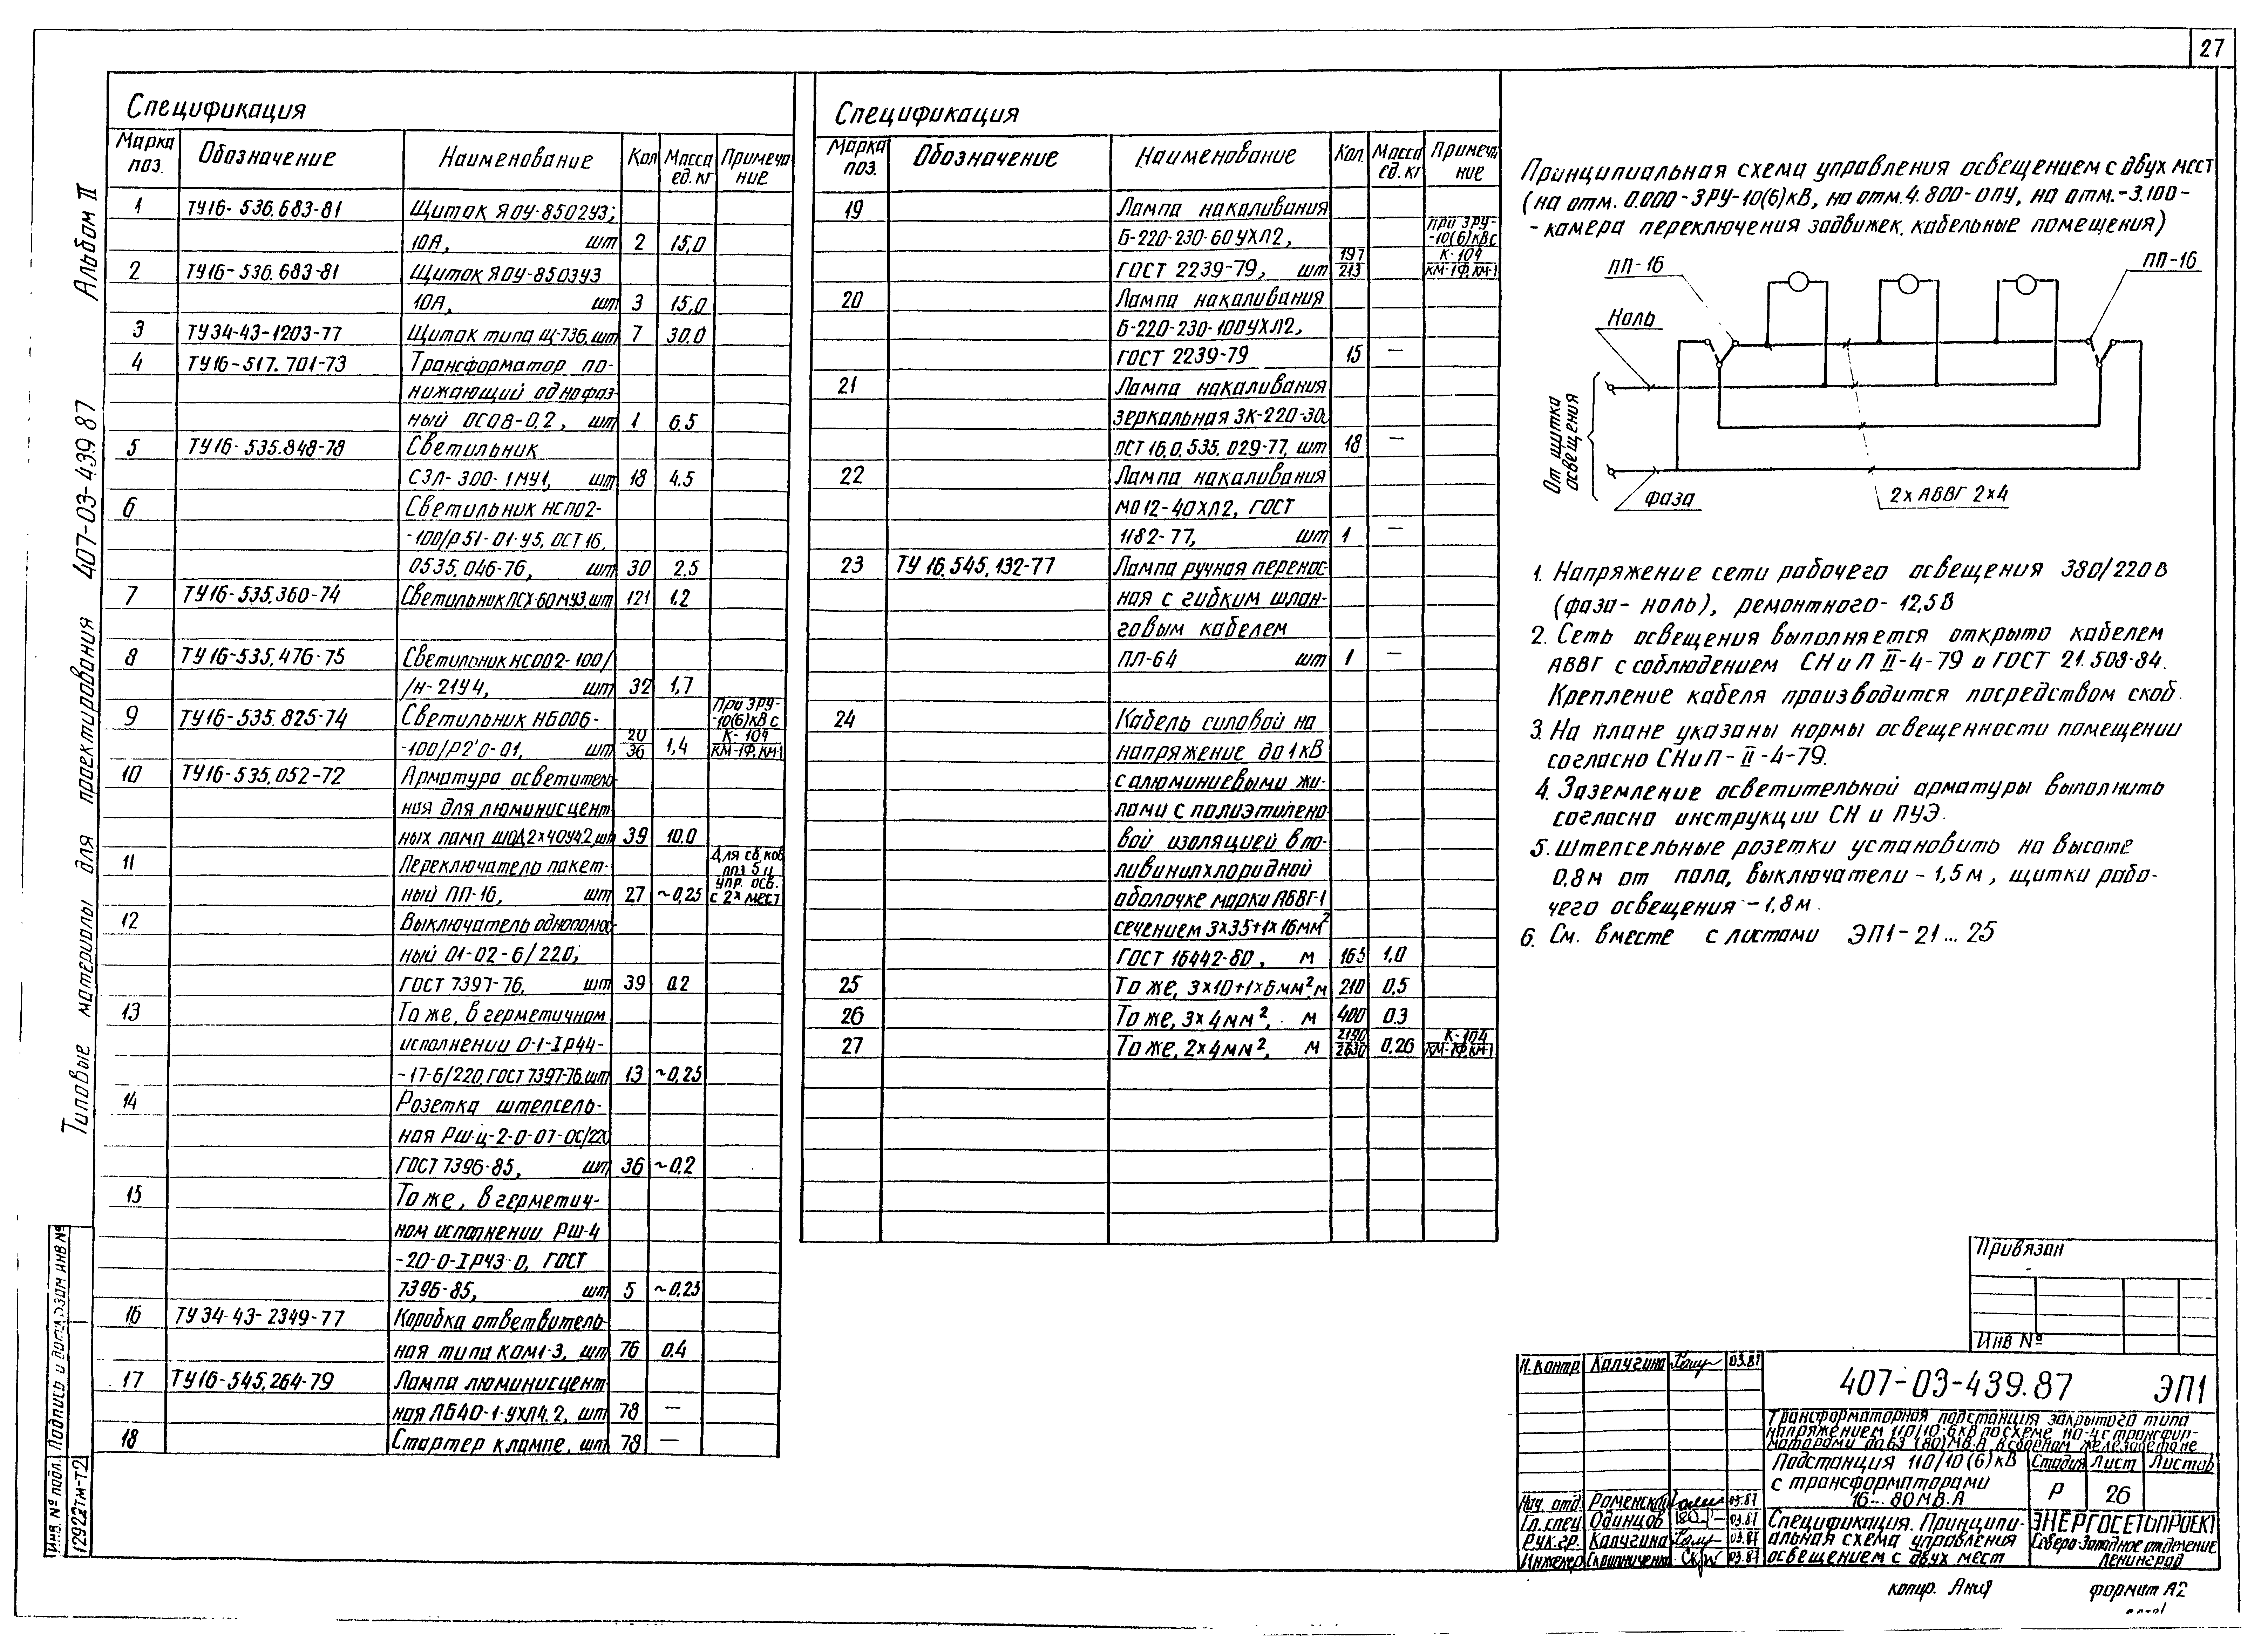 27
Альбом II
Типовые материалы для проектирования 407-03-439.87
Спецификация
Марка поз. Обозначение Наименование Кол Масса ед. кг Примечание
1 ТУ16-536.683-81 Щиток ЯОУ-8502У3;
10А, шт 2 15,0
2 ТУ16-536.683-81 Щиток ЯОУ-8503У3
10А, шт 3 15,0
3 ТУ34-43-1203-77 Щиток типа Щ-736, шт 7 30.0
4 ТУ16-517.701-73 Трансформатор по-
нижающий однофаз-
ный ОСОВ-0.2, шт 1 6.5
5 ТУ16-535.848-78 Светильник
СЗЛ-300-1МУ1, шт 18 4.5
6 Светильник НСП02-
-100/Р51-01-У5, ОСТ 16.
0535.046-76, шт 30 2.5
7 ТУ16-535.360-74 Светильник ПСХ-60МУ3, шт 121 1.2
8 ТУ16-535.476-75 Светильник НСО02-100/
/Н-21У4, шт 32 1,7
9 ТУ16-535.825-74 Светильник НБО06-
-100/Р2'0-01, шт 20/36 1,4 При ЗРУ-
-10(6)кВ с
К-104
КМ-1Ф, КМ-1
10 ТУ16-535.052-72 Арматура осветитель-
ная для люминисцент-
ных ламп ШОД2×40У4.2, шт 39 10.0
11 Переключатель пакет-
ный ПП-16, шт 27 ~0,25 Для св-ков
поз 5 и
упр. осв.
с 2х мест
12 Выключатель однополюс-
ный 01-02-6/220,
ГОСТ 7397-76, шт 39 0.2
13 То же, в герметичном
исполнении 0-1-IP44-
-17-6/220 ГОСТ 7397-76, шт 13 ~0,25
14 Розетка штепсель-
ная РШ-ц-2-0-07-0С/220
ГОСТ 7396-85, шт 36 ~0,2
15 То же, в герметич-
ном исполнении РШ-4
-20-0-IP43-0, ГОСТ
7396-85, шт 5 ~0,25
16 ТУ34-43-2349-77 Коробка ответвитель-
ная типа КОМ1-3, шт 76 0.4
17 ТУ16-545.264-79 Лампа люминисцент-
ная ЛБ40-1-УХЛ4.2, шт 78 —
18 Стартер к лампе, шт 78 —
Спецификация
Марка поз. Обозначение Наименование Кол. Масса ед. кг Примечание
19 Лампа накаливания
Б-220-230-60УХЛ2,
ГОСТ 2239-79, шт 197/213 При ЗРУ-
-10(6)кВ с
К-104
КМ-1Ф, КМ-1
20 Лампа накаливания
Б-220-230-100УХЛ2,
ГОСТ 2239-79 15 —
21 Лампа накаливания
зеркальная ЗК-220-300
ОСТ 16.0.535.029-77, шт 18 —
22 Лампа накаливания
МО12-40ХЛ2, ГОСТ
1182-77, шт 1 —
23 ТУ 16.545.132-77 Лампа ручная перенос-
ная с гибким шлан-
говым кабелем
ПЛ-64 шт 1 —
24 Кабель силовой на
напряжение до 1кВ
с алюминиевыми жи-
лами с полиэтилено-
вой изоляцией в по-
ливинилхлоридной
оболочке марки АВВГ-1
сечением 3×35+1×16мм²
ГОСТ 16442-80, м 165 1,0
25 То же, 3×10+1×6мм², м 210 0,5
26 То же, 3×4мм², м 400 0.3
27 То же, 2×4мм², м 2190/2630 0,26 К-104
КМ-1Ф, КМ-1
Принципиальная схема управления освещением с двух мест
(на отм. 0.000-ЗРУ-10(6)кВ, на отм. 4.800-ОПУ, на отм.-3.100-
-камера переключения задвижек, кабельные помещения)
ПП-16
ПП-16
Ноль
От щитка освещения
Фаза
2×АВВГ 2×4
1. Напряжение сети рабочего освещения 380/220В
(фаза-ноль), ремонтного-12,5В
2. Сеть освещения выполняется открыто кабелем
АВВГ с соблюдением СНиП II-4-79 и ГОСТ 21.508-84.
Крепление кабеля производится посредством скоб.
3. На плане указаны нормы освещенности помещении
согласно СНиП-II-4-79.
4. Заземление осветительной арматуры выполнить
согласно инструкции СН и ПУЭ.
5. Штепсельные розетки установить на высоте
0,8м от пола, выключатели-1,5м, щитки рабо-
чего освещения-1,8м.
6. См. вместе с листами ЭП1-21...25
Привязан
Инв №
Н. контр. Калугина 03.87
407-03-439.87 ЭП1
Трансформаторная подстанция закрытого типа
напряжением 110/10-6кВ по схеме 110-4 с трансфор-
маторами до 63 (80)МВ.А в сборном железобетоне
Подстанция 110/10(6)кВ
с трансформаторами
16...80МВ.А
Стадия Лист Листов
Р 26
Нач. отд. Роменский 03.87
Гл. спец Одинцов 03.87
Рук. гр. Калугина 03.87
Инженер Скрипниченко 03.87
Спецификация. Принципи-
альная схема управления
освещением с двух мест
ЭНЕРГОСЕТЬПРОЕКТ
Северо-Западное отделение
Ленинград
копир. формат А2
Инв. № подл. Подпись и дата Взам инв №
12922тм-т2